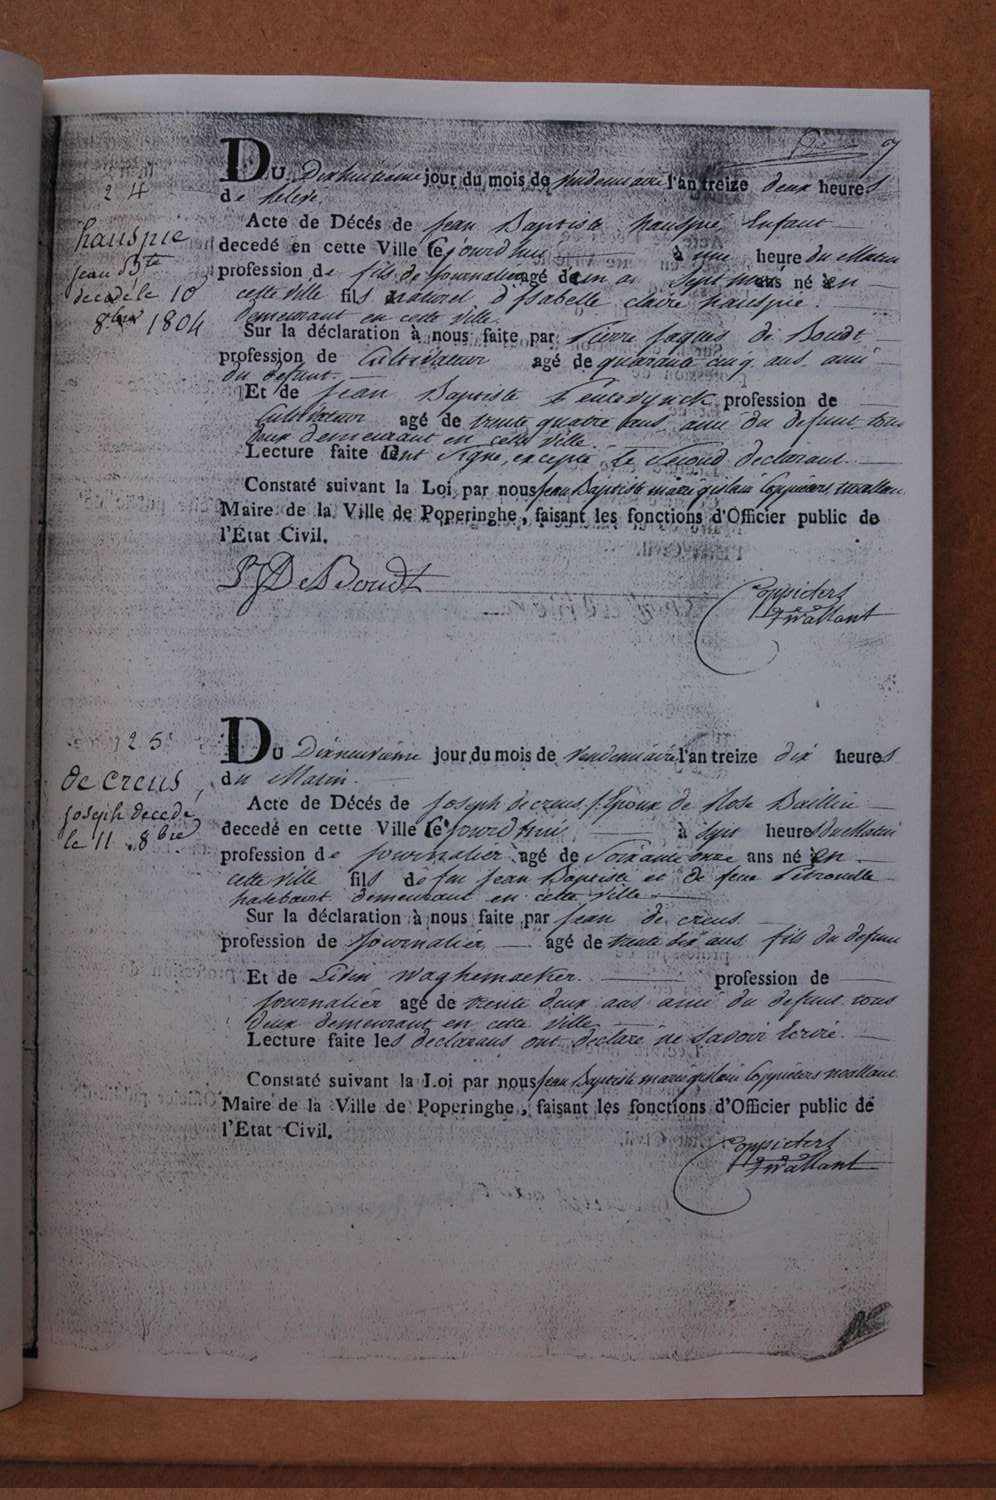 7
24
hauspie
jean Bte
decedé le 10
8bre 1804
DU Dixhuitieme jour du mois de Vendemiaire l'an treize deux heures
de relevé.
Acte de Décés de Jean Baptiste hauspie Enfant
decedé en cette Ville Ce jourdhui à une heure du Matin
profession de fils de journalier agé de un an Sept mois né en
cette ville fils naturel d'Isabelle claire hauspie.
demeurant en cette ville.
Sur la déclaration à nous faite par Pierre Jaques De Boudt
profession de Cultivateur agé de quarante cinq ans ami
du defunt.
Et de Jean Baptiste profession de
Cultivateur agé de trente quatre ans ami du defunt tous
deux demeurant en cette ville
Lecture faite ont Signé, excepté le Second declarant.
Constaté suivant la Loi par nous Jean Baptiste marie gislain Coppieters twallant
Maire de la Ville de Poperinghe, faisant les fonctions d'Officier public de
l'État Civil.
PJ De Boudt
Coppieters
twallant
25
de creus,
joseph decedé
le 11 8bre
DU Dixneuvieme jour du mois de Vendemiaire l'an treize dix heures
du Matin.
Acte de Décés de Joseph de creus, Epoux de Rose Baillieu
decedé en cette Ville Ce jourd'hui à Sept heures du Matin
profession de Journalier agé de Soixante onze ans né en
cette ville fils de feu Jean Baptiste et de feue Petronille
hasebaert demeurant en cette ville
Sur la déclaration à nous faite par Jean de creus
profession de Journalier agé de trente dix ans fils du defunt
Et de Livin Waghemaeker. profession de
Journalier agé de trente deux ans ami du defunt tous
deux demeurant en cette ville
Lecture faite les declarans ont declaré ne Savoir Ecrire.
Constaté suivant la Loi par nous Jean Baptiste marie gislain Coppieters twallant
Maire de la Ville de Poperinghe, faisant les fonctions d'Officier public de
l'État Civil.
Coppieters
twallant